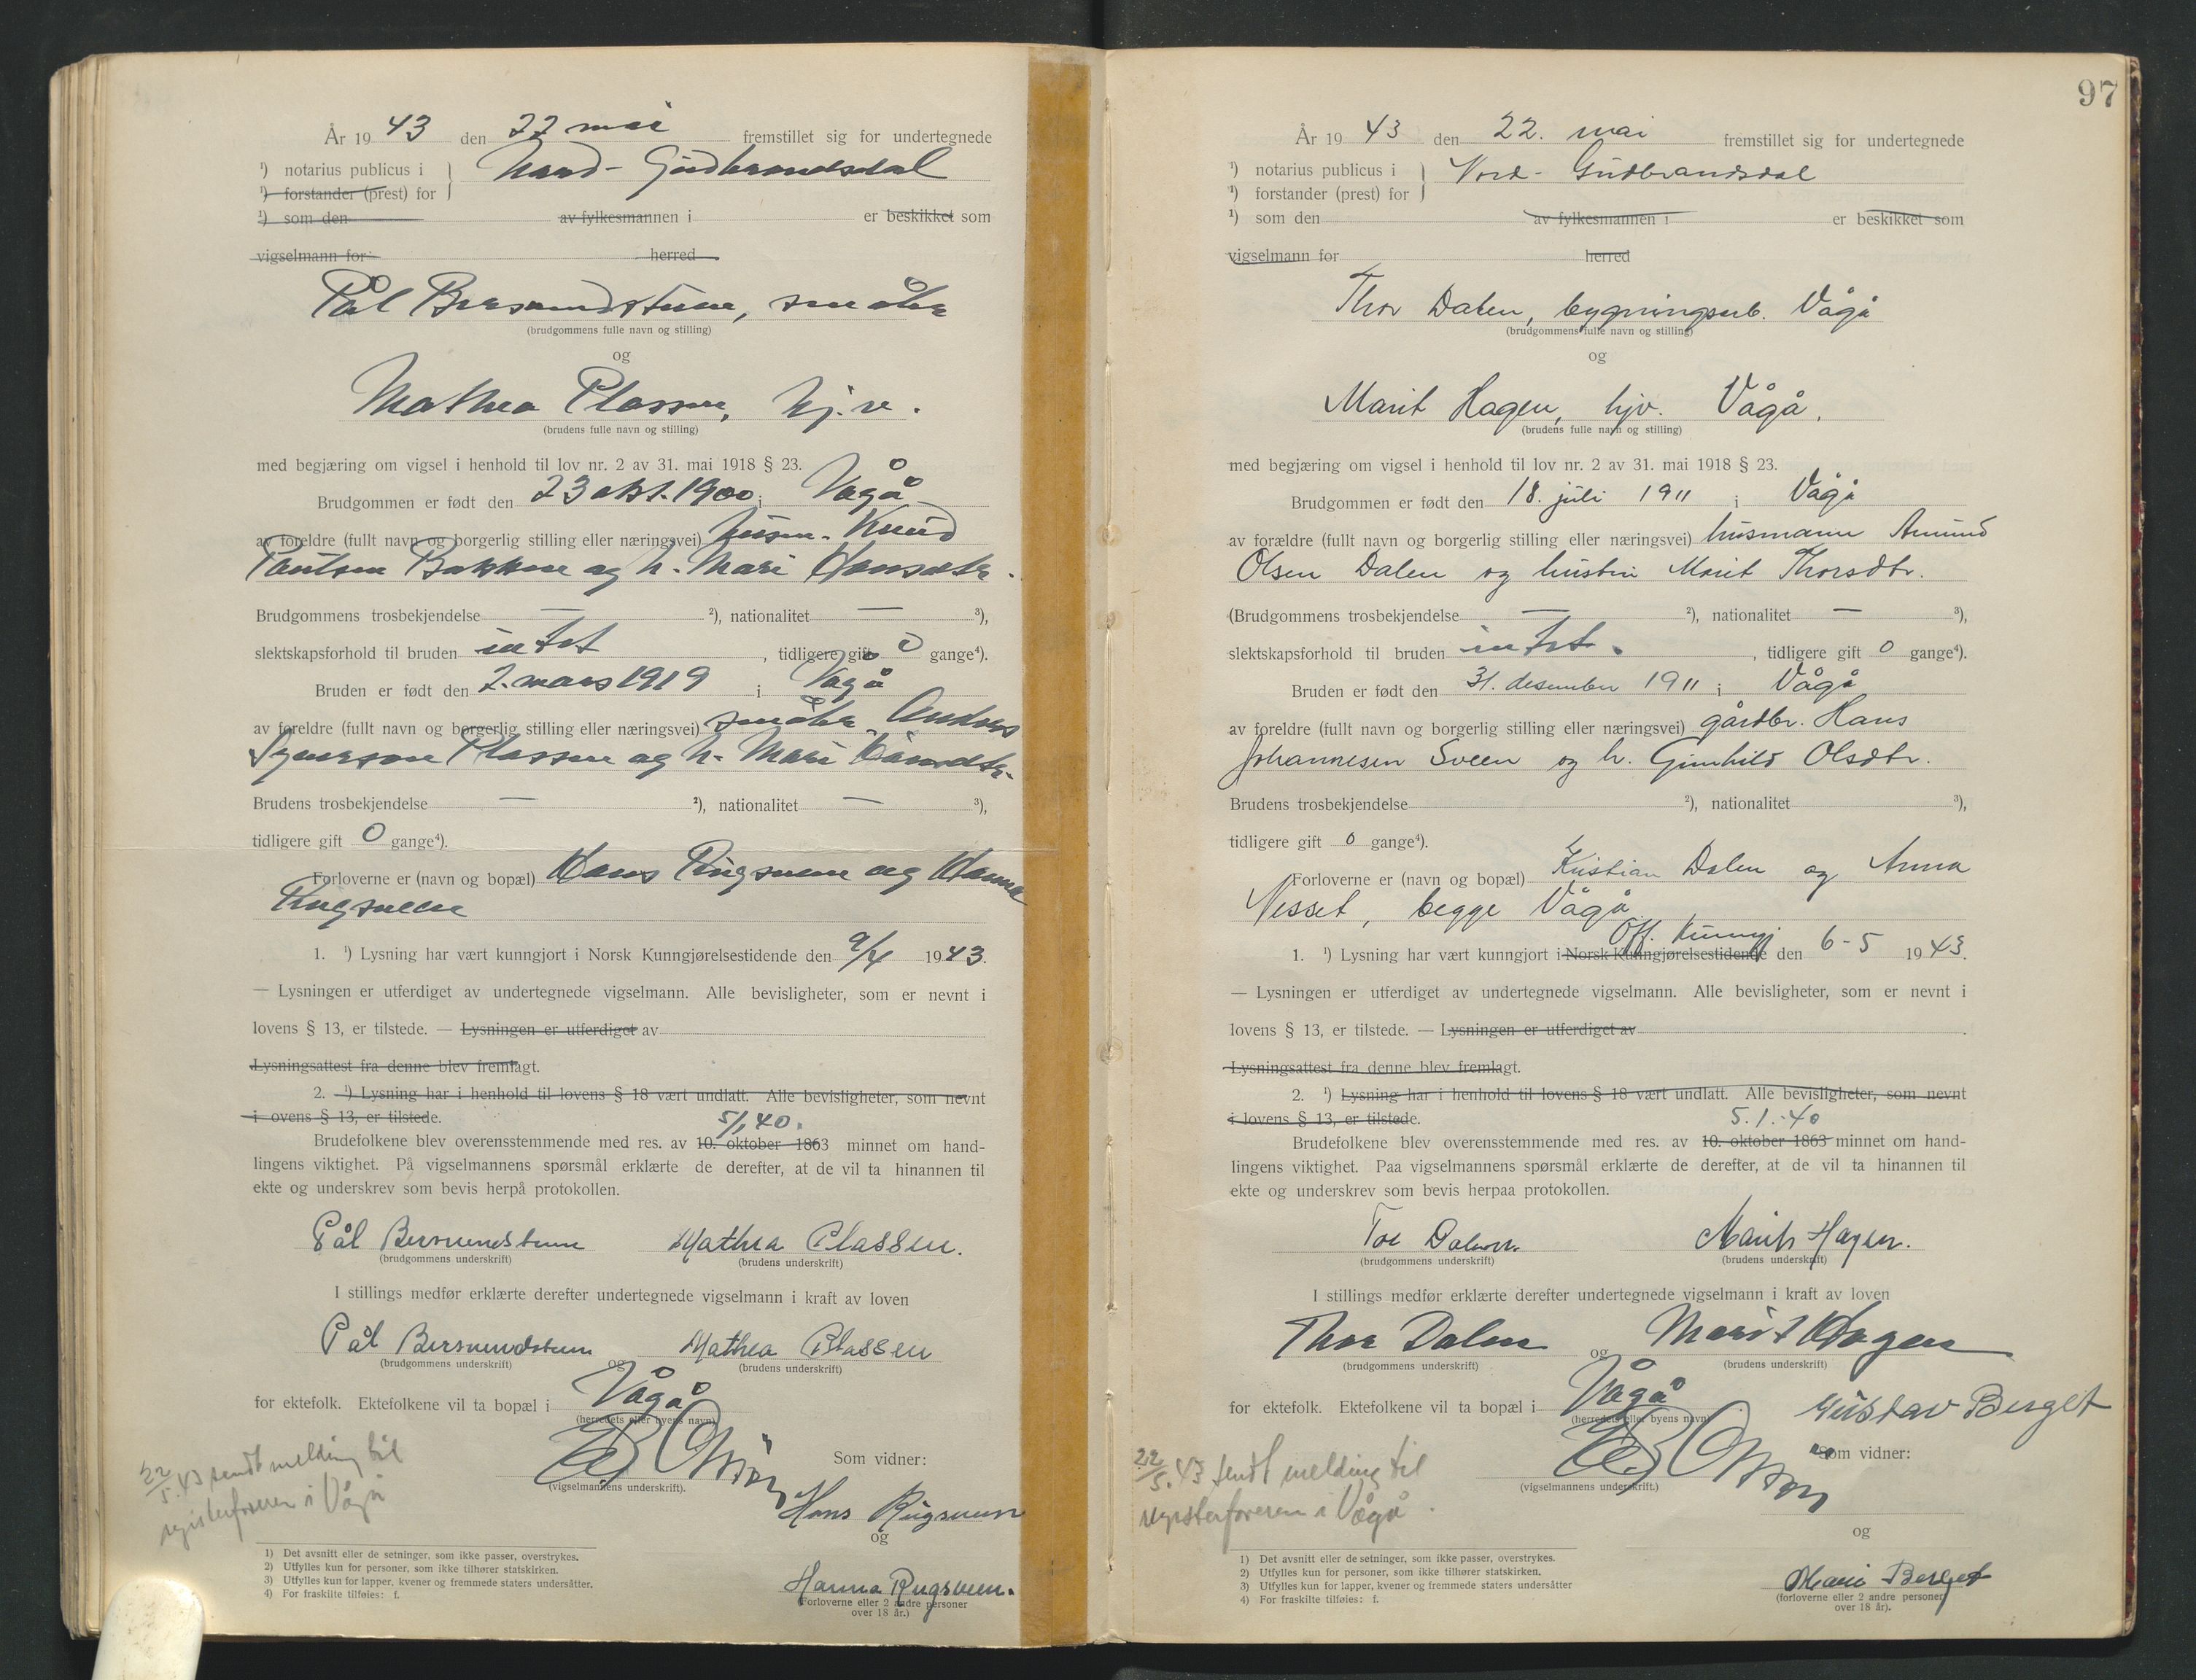 År 19 43 den 22 mai fremstillet sig for undertegnede
¹) notarius publicus i } Nord-Gudbrandsdal
¹) forstander (prest) for
¹) som den av fylkesmannen i er beskikket som
vigselmann for herred
Pål Bersvendstuen, småbr
(brudgommens fulle navn og stilling)
og
Mathea Plassen, hj.v.
(brudens fulle navn og stilling)
med begjæring om vigsel i henhold til lov nr. 2 av 31. mai 1918 § 23.
Brudgommen er født den 23 okt. 1900 i Vågå
av foreldre (fullt navn og borgerlig stilling eller næringsvei) husm. Knud
Paulsen Bakken og h. Mari Hansdtr.
Brudgommens trosbekjendelse — ²), nationalitet — ³),
slektskapsforhold til bruden intet, tidligere gift 0 gange⁴).
Bruden er født den 2. mars 1919 i Vågå
av foreldre (fullt navn og borgerlig stilling eller næringsvei) småbr. Anders
Syversen Plassen og h. Mari
Brudens trosbekjendelse — ²), nationalitet — ³),
tidligere gift 0 gange⁴).
Forloverne er (navn og bopæl) Hans Rugsveen og Hanna
Rugsveen
1. ¹) Lysning har vært kunngjort i Norsk Kunngjørelsestidende den 9/4 1943.
— Lysningen er utferdiget av undertegnede vigselmann. Alle bevisligheter, som er nevnt i
lovens § 13, er tilstede. — Lysningen er utferdiget av
Lysningsattest fra denne blev fremlagt.
2. ¹) Lysning har i henhold til lovens § 18 vært undlatt. Alle bevisligheter, som nevnt
i lovens § 13, er tilstede.
5/1 40.
Brudefolkene blev overensstemmende med res. av 10. oktober 1863 minnet om hand-
lingens viktighet. På vigselmannens spørsmål erklærte de derefter, at de vil ta hinannen til
ekte og underskrev som bevis herpå protokollen.
Pål Bersvendstuen Mathea Plassen.
(brudgommens underskrift) (brudens underskrift)
I stillings medfør erklærte derefter undertegnede vigselmann i kraft av loven
Pål Bersvendstuen og Mathea Plassen
(brudgommens underskrift) (brudens underskrift)
for ektefolk. Ektefolkene vil ta bopæl i Vågå
(herredets eller byens navn)
Som vidner:
(vigselmannens underskrift).
Hans Rugsveen
og
Hanna Rugsveen.
(Forloverne eller 2 andre personer
over 18 år.)
22/5. 43 sendt melding til
registerføreren i Vågå
1) Det avsnitt eller de setninger, som ikke passer, overstrykes.
2) Utfylles kun for personer, som ikke tilhører statskirken.
3) Utfylles kun for lapper, kvener og fremmede staters undersåtter.
4) For fraskilte tilføies: f.
97
År 19 43 den 22. mai fremstillet sig for undertegnede
¹) notarius publicus i } Nord-Gudbrandsdal
¹) forstander (prest) for
¹) som den av fylkesmannen i er beskikket som
vigselmann for herred
Thor Dalen, bygningsarb. Vågå
(brudgommens fulle navn og stilling)
og
Marit Hagen, hjv. Vågå.
(brudens fulle navn og stilling)
med begjæring om vigsel i henhold til lov nr. 2 av 31. mai 1918 § 23.
Brudgommen er født den 18. juli 1911 i Vågå
av forældre (fullt navn og borgerlig stilling eller næringsvei) husmann Amund
Olsen Dalen og hustru Marit Thorsdtr.
(Brudgommens trosbekjendelse — ²), nationalitet — ³),
slektskapsforhold til bruden intet., tidligere gift 0 gange⁴).
Bruden er født den 31. desember 1911 i Vågå
av foreldre (fullt navn og borgerlig stilling eller næringsvei) gårdbr. Hans
Johannesen Sveen og h. Gunhild Olsdtr.
Brudens trosbekjendelse ²), nationalitet ³),
tidligere gift 0 gange⁴).
Forloverne er (navn og bopæl) Kristian Dalen og Anna
Nesset, begge Vågå
Off. kunngj
1. ¹) Lysning har vært kunngjort i Norsk Kunngjørelsestidende den 6-5 1943.
— Lysningen er utferdiget av undertegnede vigselmann. Alle bevisligheter, som er nevnt i
lovens § 13, er tilstede. — Lysningen er utferdiget av
Lysningsattest fra denne blev fremlagt.
2. ¹) Lysning har i henhold til lovens § 18 vært undlatt. Alle bevisligheter, som nevnt
i lovens § 13, er tilstede.
5.1.40
Brudefolkene blev overensstemmende med res. av 10. oktober 1863 minnet om hand-
lingens viktighet. Paa vigselmannens spørsmål erklærte de derefter, at de vil ta hinannen til
ekte og underskrev som bevis herpaa protokollen.
Tor Dalen. Marit Hagen.
(brudgommens underskrift) (brudens underskrift)
I stillings medfør erklærte derefter undertegnede vigselmann i kraft av loven
Thor Dalen og Marit Hagen
(brudgommens underskrift) (brudens underskrift)
for ektefolk. Ektefolkene vil ta bopæl i Vågå
(herredets eller byens navn)
Gustav Berget
Som vidner:
(vigselmannens underskrift.)
og
Mari Berget
(forloverne eller 2 andre personer
over 18 år).
22/5. 43 sendt melding til
registerføreren i Vågå.
1) Det avsnitt eller de setninger, som ikke passer, overstrykes.
2) Utfylles kun for personer, som ikke tilhører statskirken.
3) Utfylles kun for lapper, kvener og fremmede staters undersåtter
4) For fraskilte tilføies: f.